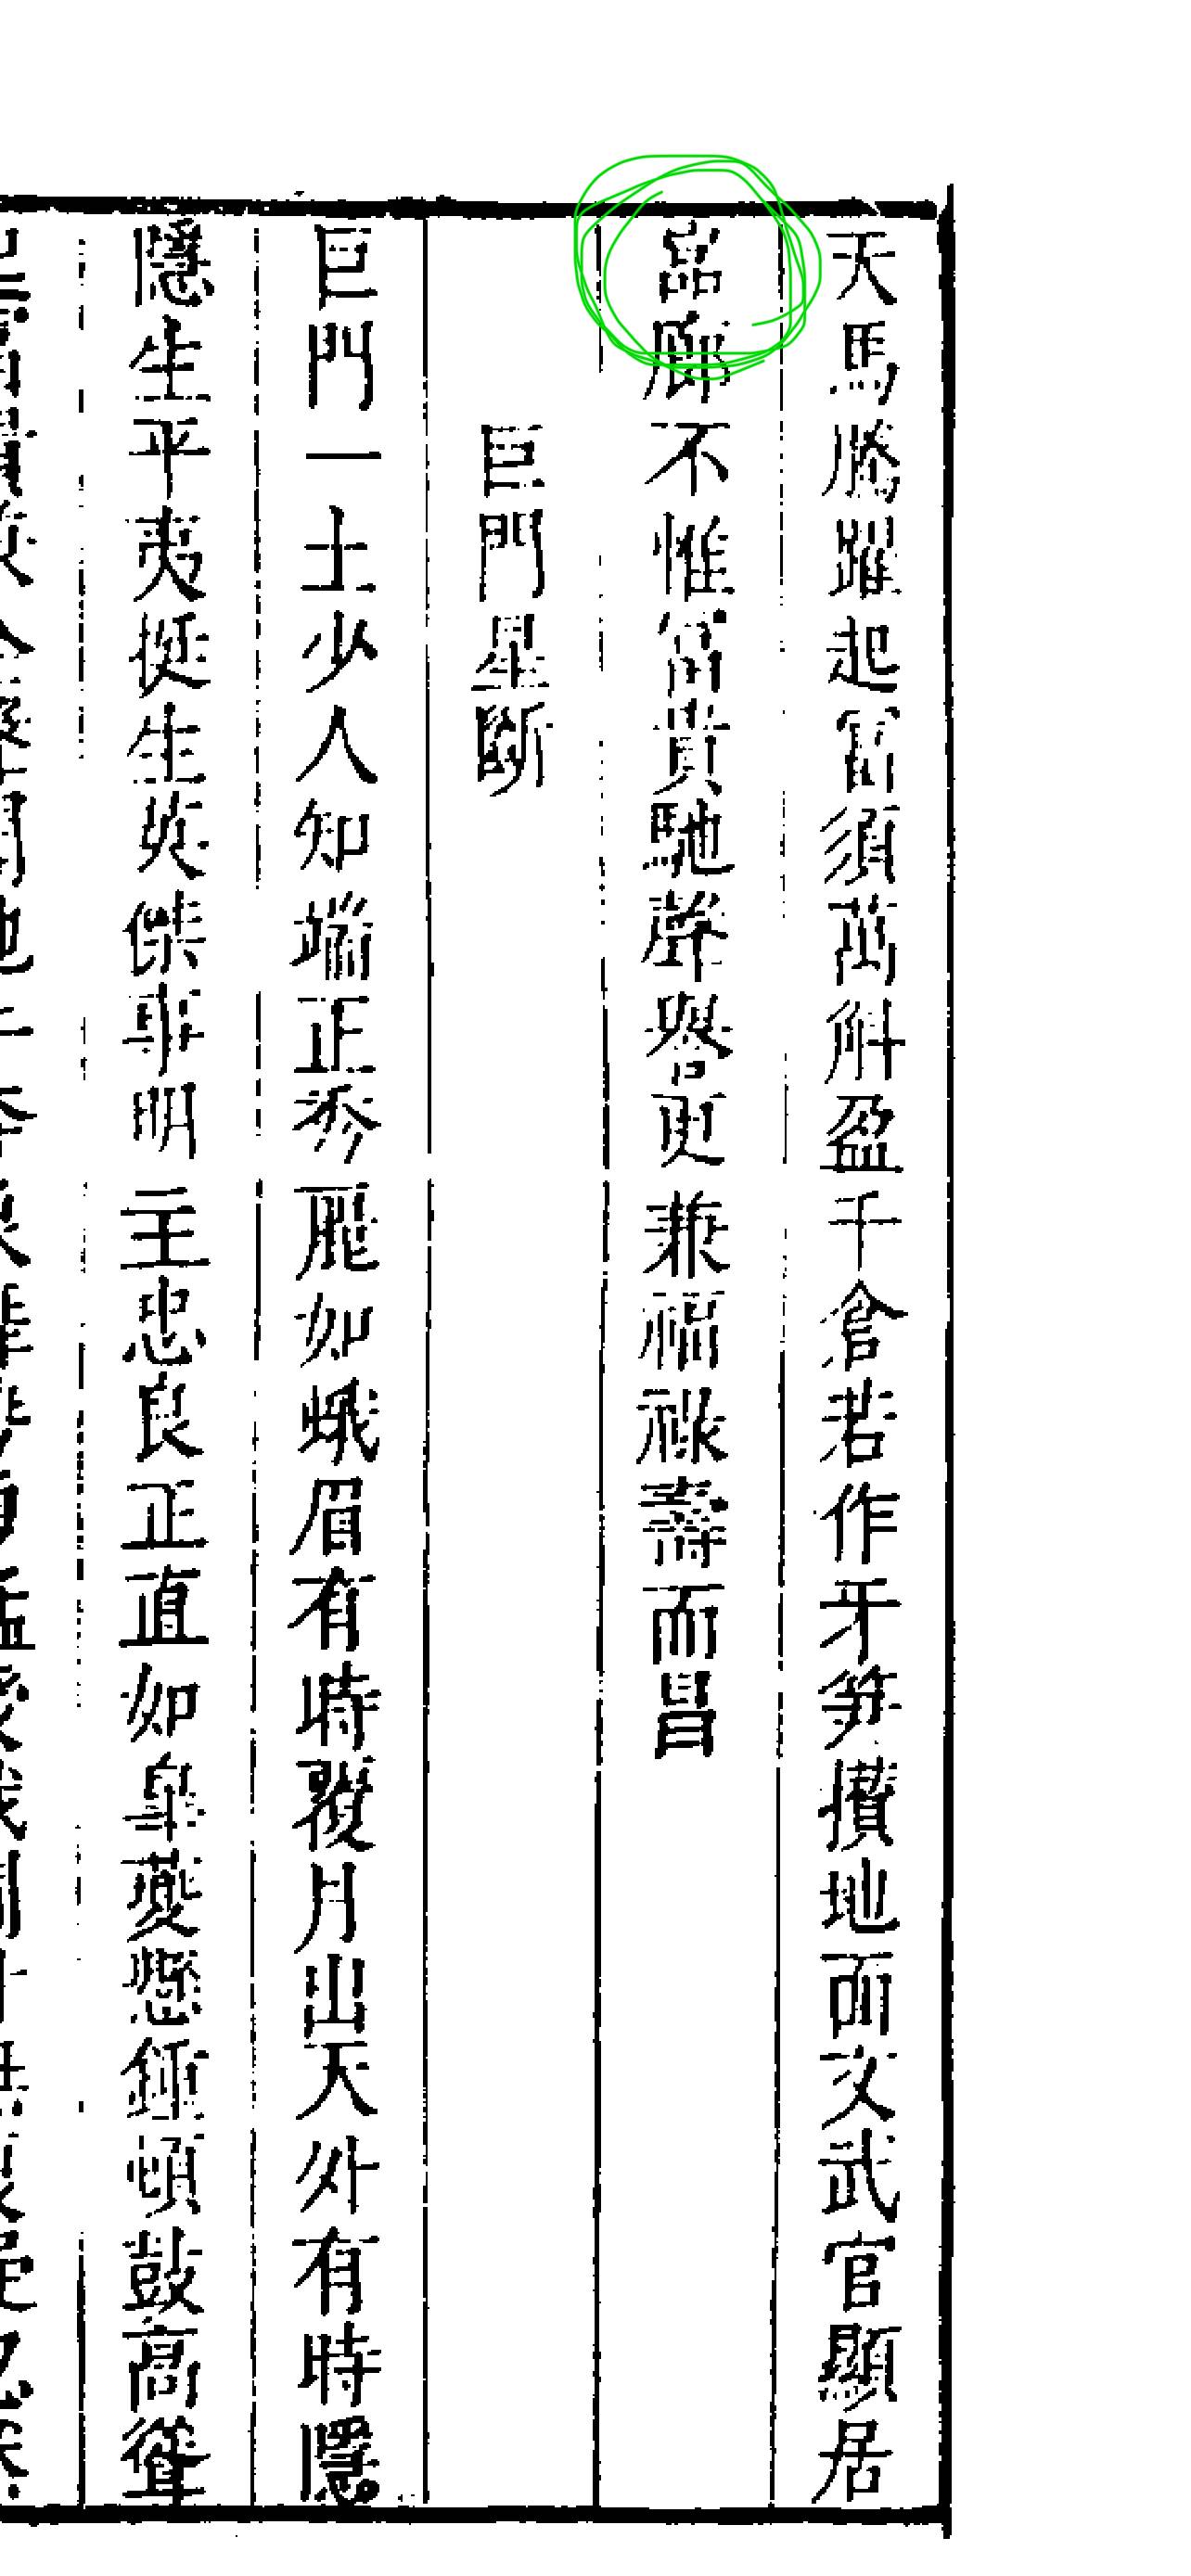 天馬騰躍起富須萬斛盈千倉若作牙笏攢地面文武官顯居
嵒廊不惟富貴馳聲譽更兼福祿壽而昌
巨門星斷
巨門一土少人知端正秀麗如蛾眉有時覆月出天外有時隱
隱生平夷挺生英傑事明主忠良正直如臯夔懸鍾頓鼓高聳